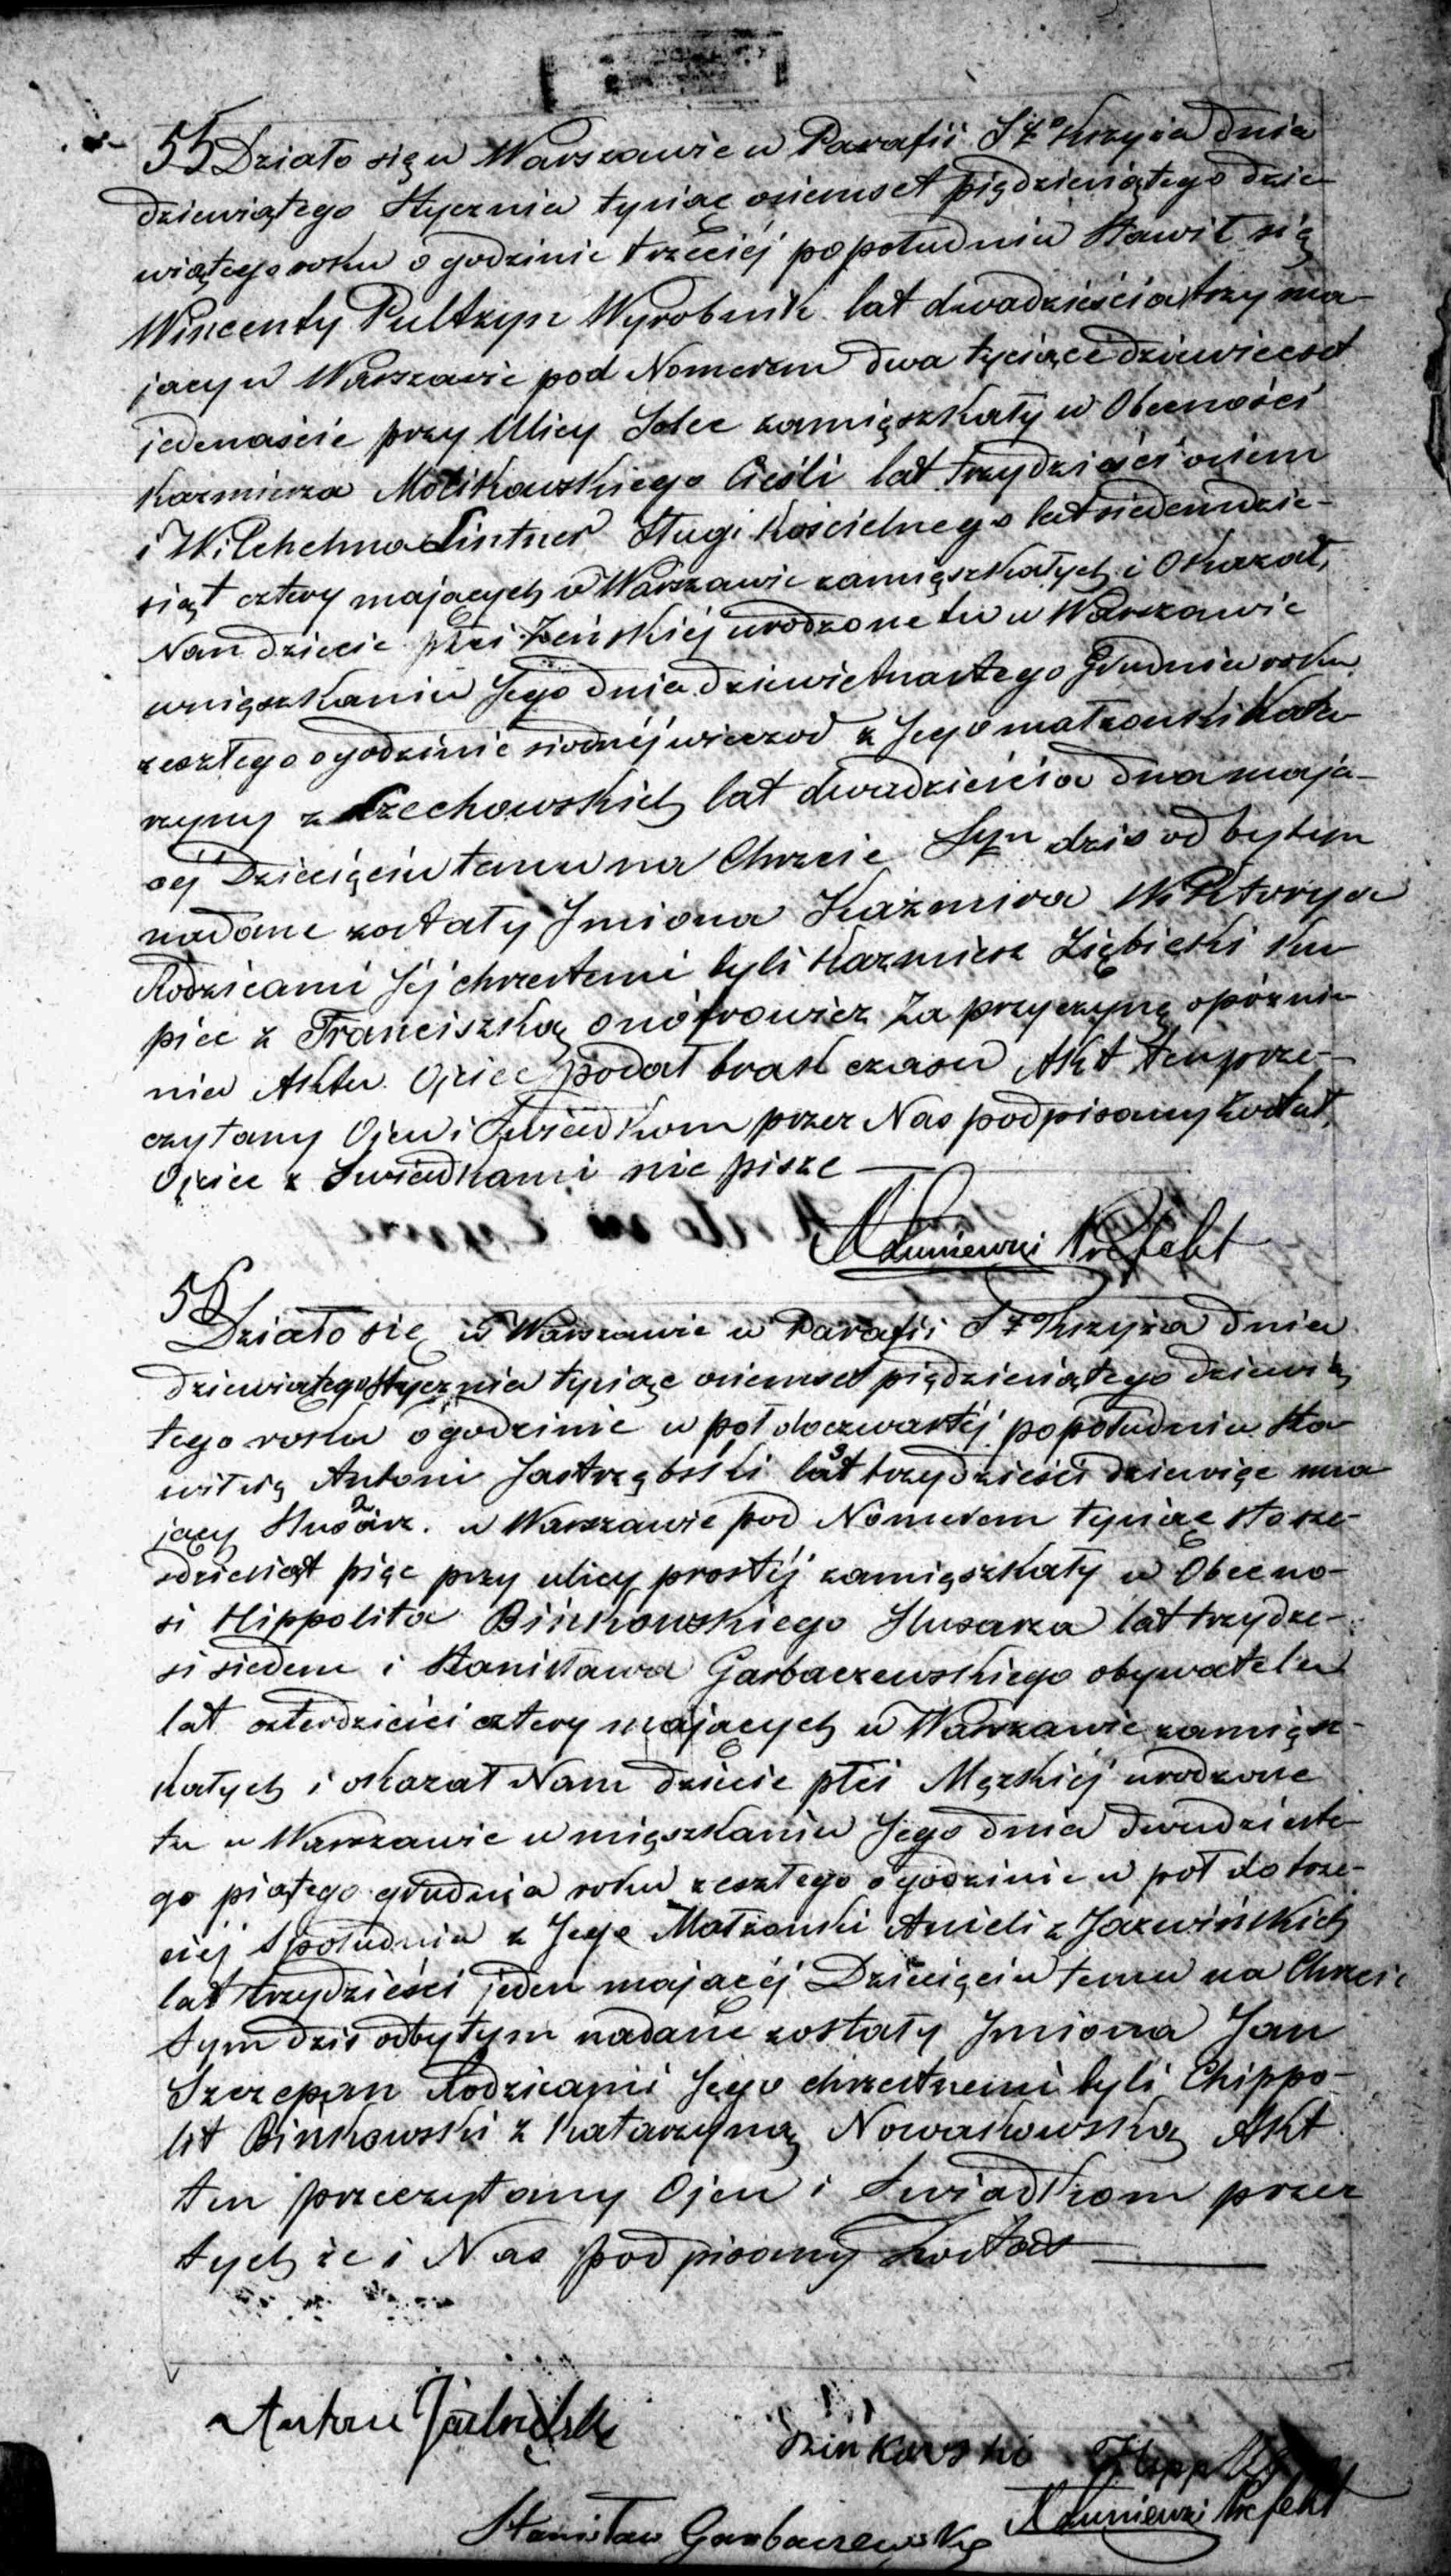 55 Działo się w Warszawie w Parafii Sgo Krzyża dnia
dziewiątego Stycznia tysiąc ośiemset piędzieśiątego dzie-
wiątego roku o godzinie trzeciéj popołudniu Stawił się
Wincenty Pultzyn Wyrobnik lat dwadzieścia trzy ma-
jący w Warszawie pod Nomerem dwa tysiące dziewiećset
jedenaście przy Ulicy Solec zamięszkały w Obecności
Kazmierza Molikowskiego Cieśli lat trzydzieści ośiem
i Wilchelma Lintner Sługi Kościelnego lat siedemdzie-
siąt cztery mających w Warszawie zamięszkałych i Okazał
Nam dziecie płci Żeńskiéj urodzone tu w Warszawie
wmięszkaniu Jego dnia dziewietnastego Grudnia roku
zeszłego o godzinie siódméj wieczod z Jego małżonki Kata-
rzyny z Czechowskich lat dwadzieścia dwa mają-
céj Dziecięciu temu na Chrzcie Sym dziś odbytym
nadane zostały Jmiona Kaźmira Wiktorya
Rodzicami Jéj chrzestemi byli Kazmierz Ziębicki Ku-
piec z Franciszką Onofrowicz Za przyczynę opóznie-
nia Aktu Ojciec podał brak czasu Akt ten prze-
czytany Ojcu i Swiadkom przez Nas podpisany został
Ojciec z Swiadkami nie pisze
Prefekt
56
Działo się w Warszawie w Parafii Sgo Krzyża dnia
dziewiątego Stycznia tysiąc ośiemset piędzieśiątego dziewią-
tego roku o godzinie w pół do czwartéj popołudniu Sta-
wił się Antoni Jastrzębski lat trzydzieści dziewięć ma-
jący Slusarz. w Warszawie pod Nomerem tysiąc sto sze-
śdziesiąt pięć przy ulicy prostéj zamięszkały w Obecno-
si Hippolita Binkowskiego Slusarza lat trzydzie-
si siedem i Stanisława Garbaczewskiego obywatela
lat czterdzieści cztery mających w Warszawie zamięsz-
kałych i okazał Nam dziecie płci Męzkiéj urodzone
tu w Warszawie w mięszkaniu Jego dnia dwudzieste-
go piątego grudnia roku zeszłego o godzinie w pół do trze-
ciéj z południa z Jego Małżonki Anieli z Jarzwińskich
lat trzydzieści jeden mającéj Dziecięciu temu na Chrzcie
Sym dziś odbytym nadane zostały Jmiona Jan
Szczepan Rodzicami Jego chrzestnemi byli Chippo-
lit Binkowski z Katarzyną Nowakowską Akt
ten przeczytany Ojcu i Swiadkom przez
tychże i Nas podpisany został
Antoni Jastrzębski
Binkowski Hippolit
Prefekt
Stanisław Garbaczewski